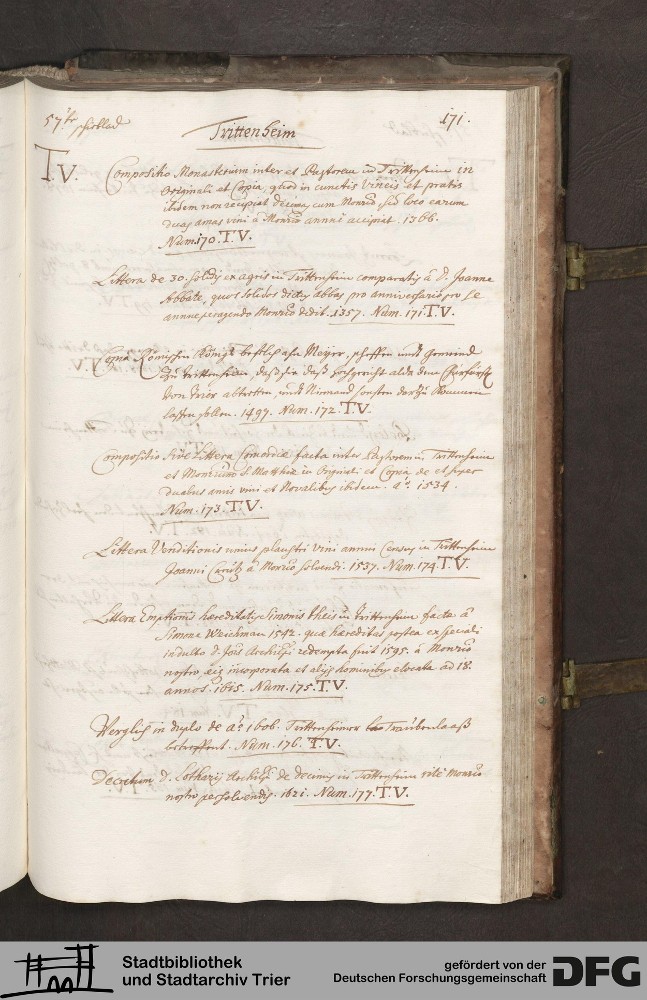 57te schoblad
171.
Trittenheim
T.V.
Compositio Monasterium inter et Pastorem in Trittenheim in
Originali et Copia, quod in cunctis vineis et pratis
ibidem non accipiat decimas cum Monrio sed loco earum
duas amas vini à Monrio annui accipiat. 1366.
Num. 170. T.V.
Littera de 30. solidis ex agris in Trittenheim comparatis à D. Joanne
Abbate, quos solidos dictus abbas pro anniversario pro se
annue peragendo Monrio dedit. 1357. Num. 171. T.V.
Copia Römischen Königs befelchs ahn Meyer, scheffen undt gemeind
zu Trittenheim, daß sie daß hochgericht alda dem Churfürst
von Trier abtretten, undt Niemand sonsten darzu kommen
lassen sollen. 1497. Num. 172. T.V.
Compositio sive Littera concordiæ facta inter Pastorem in Trittenheim
et Monrium S. Matthiæ in Originali et Copia de et super
duabus amis vini et Novalibus ibidem. aö. 1534.
Num. 173. T.V.
Littera Venditionis unius plaustri vini annui Census in Trittenheim
Joanni à Monrio solvendi. 1537. Num. 174. T.V.
Littera Emptionis hæreditatis Simonis theis in Trittenheim facta à
Simone Weichman 1542. quæ hæreditas postea ex speciali
indulto D. Jois Archiepi redempta fuit 1595. à Monrio
nostro, eiq incorporata et alijs hominibus elocata ad 18.
annos. 1615. Num. 175. T.V.
Verglich in duplo de aö. 1606. Trittenheimer Traubenlaaß
betreffent. Num. 176. T.V.
Decretum D. Lotharij Archiepi de decimis in Trittenheim rite Monrio
nostro persolvendis. 1621. Num. 177. T.V.
Stadtbibliothek
und Stadtarchiv Trier
gefördert von der
Deutschen Forschungsgemeinschaft
DFG